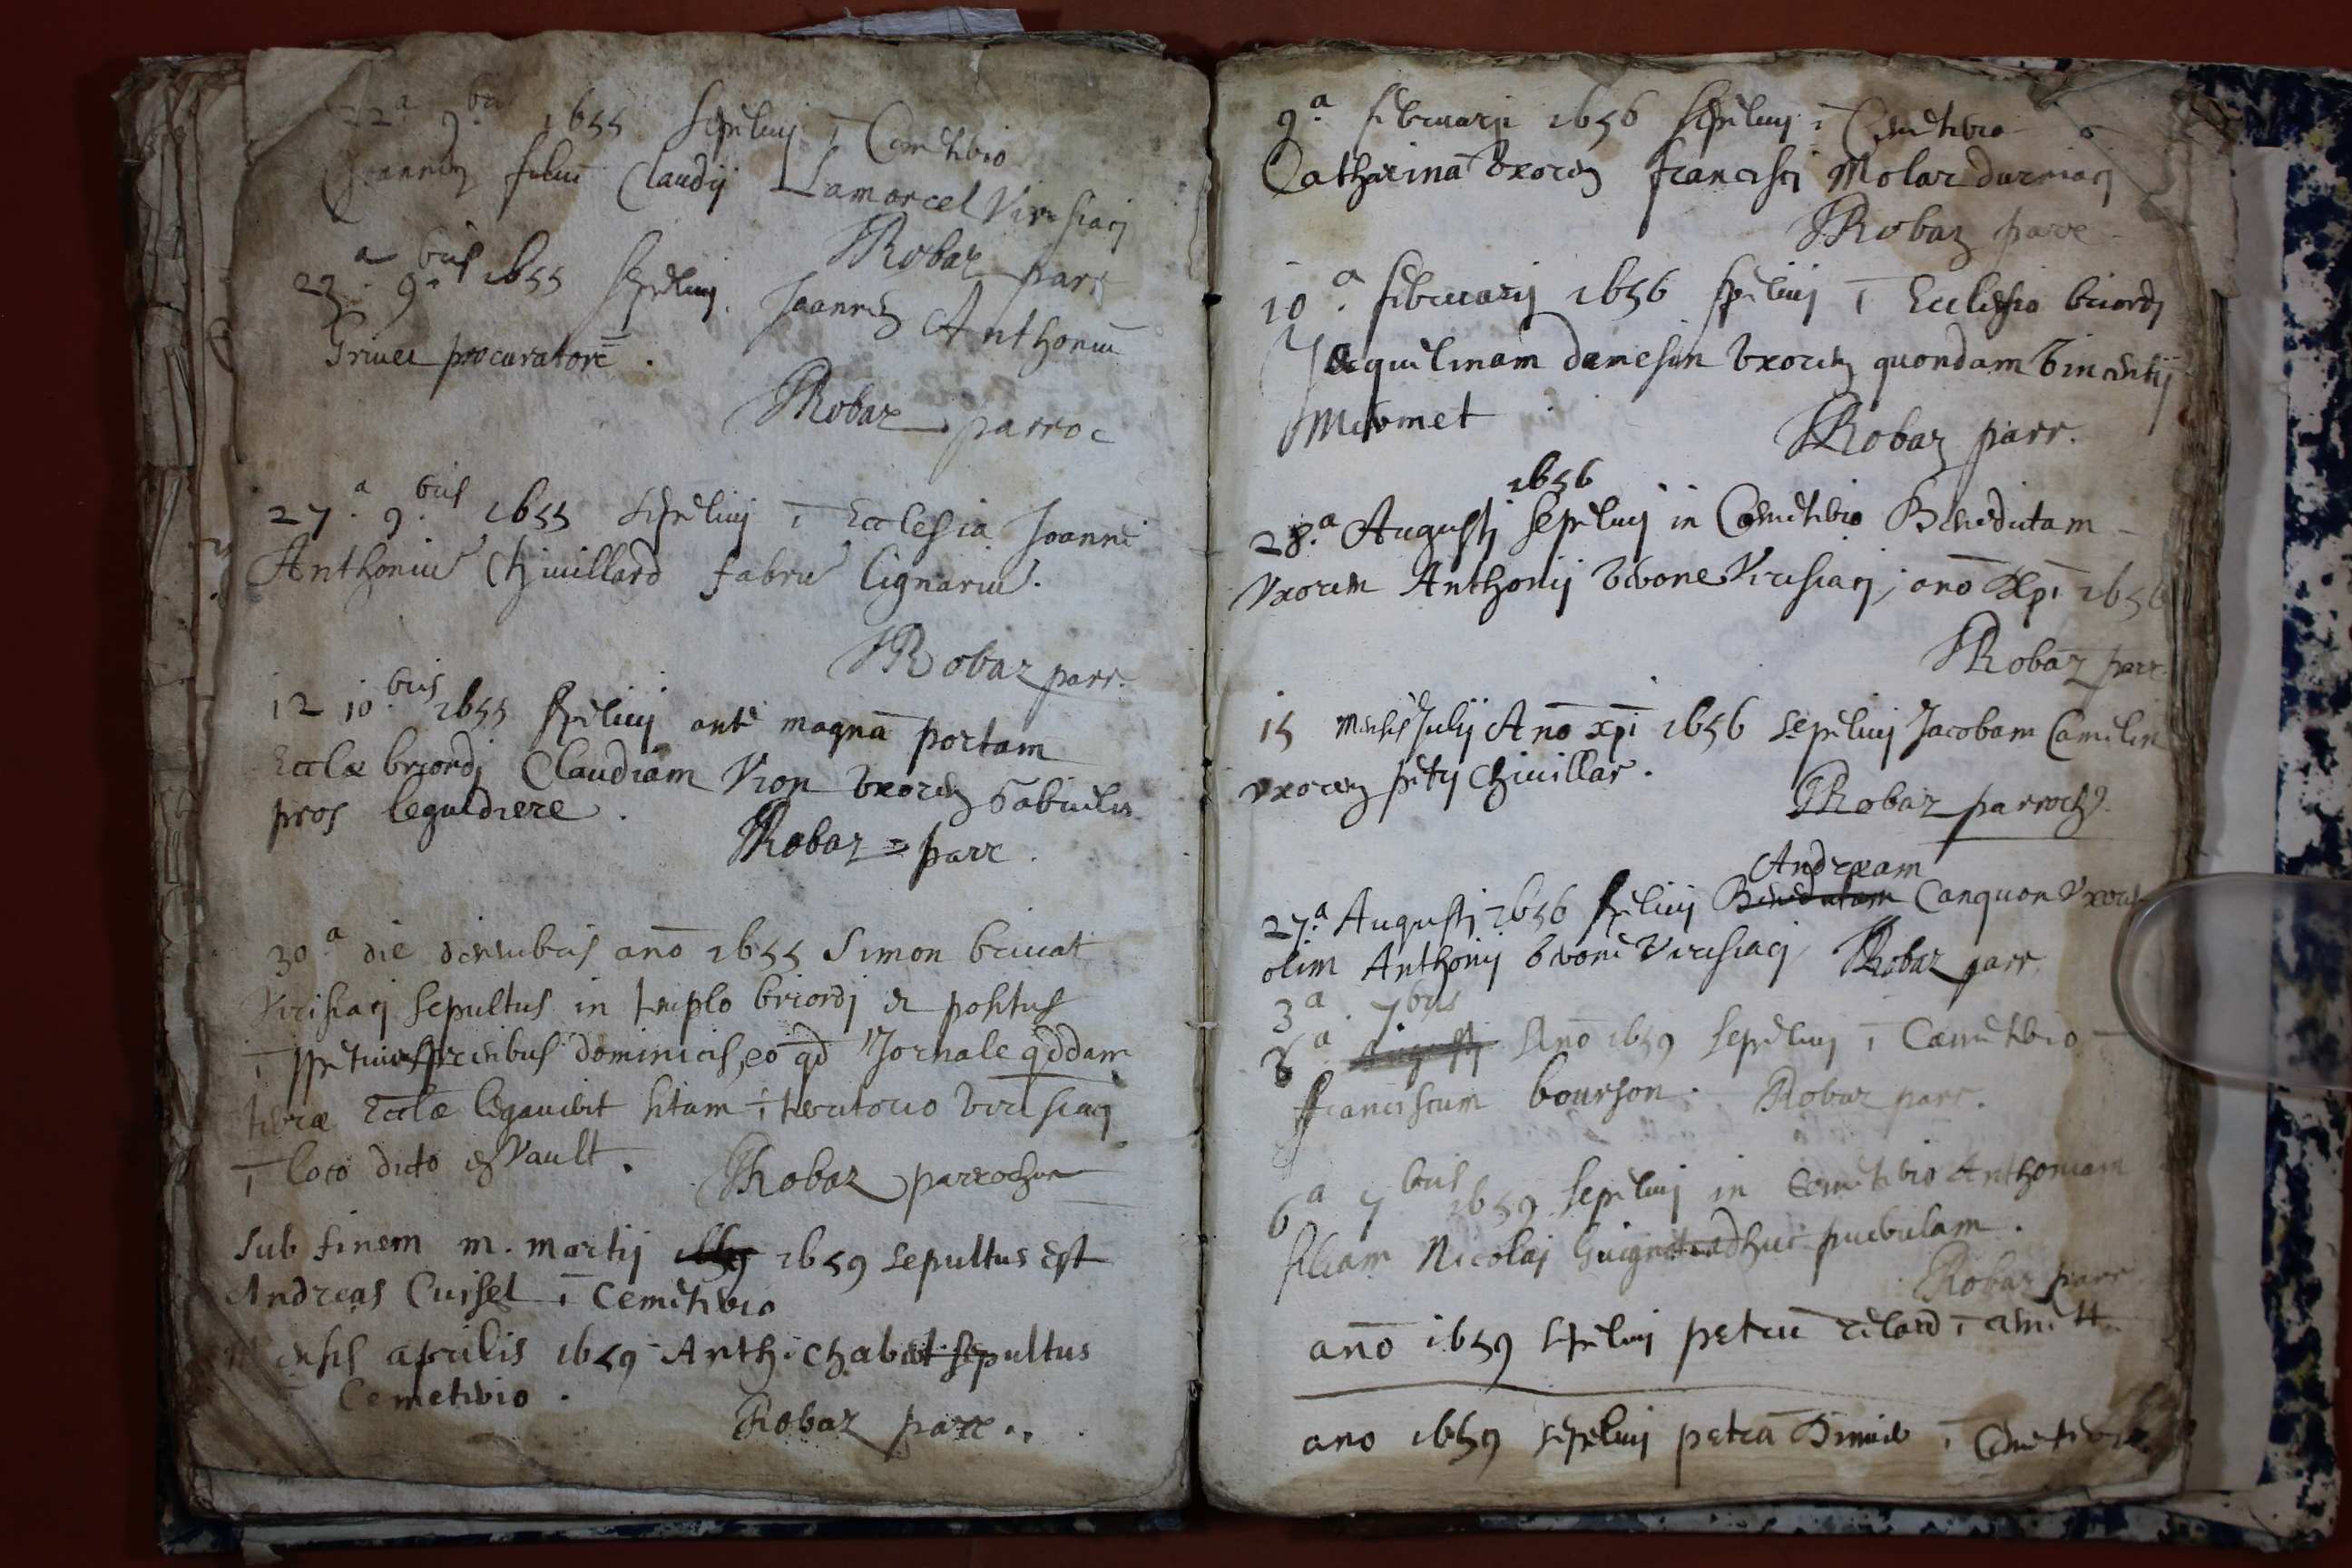 22.ª 9.bris 1655 sepelivi ī Cemeterio
Joannem filiū Claudij Lamarcel Virisiaci
Robaz parr
23.ª 9.bris 1655 sepelivi Joannem Anthoniū
Grivet procuratorē.
Robaz parroc
27.ª 9.bris 1655 sepelivi ī Ecclesia Joannē
Anthoniū Chivillard fabrū lignariū.
Robaz parr.
12 10.bris 1655 sepelivi ante magnā portam
Ecclæ briordj Claudiam Vion vxorem
pros leguldiere.
Robaz = parr.
30.ª die decembris anō 1655 Simon brivat
Virisiaci sepultus in templo briordj & positus
ī precibus dominicis, eo qd Jornale qddam
terræ Ecclæ legaverit sitam ī territorio virisiaci
ī loco dicto es Vault. Robaz parrochus
Sub finem m. martij 1659 sepultus Est
Andreas Cuisel ī Cemeterio
mensis aprilis 1659 Anth. Chabot sepultus
Cemeterio.
Robaz parr.
9.ª februarij 1656 sepelivi ī Cemeterio
Catharinā vxorem francisci Molar durniaci
Robaz parr
10.ª februarij 1656 sepelivi ī Ecclesia briordj
Jaquelinam damesin vxorem quondam vincentij
Mermet Robaz parr.
1656
28.ª Augusti sepelivi in Cemeterio Benedictam
Vxorem Anthonij Virisiaci, anō Xpi 1656
Robaz parr
15 mensis Julij Anō xpi 1656 sepelivi Jacobam Camelin
vxorem petri Chivillar.
Robaz parrochs.
Andream
27.ª Augusti 1656 sepelivi Benedictam Canquon Vxorem
olim Anthonij Virisiaci Robaz parr
3ª 7bris
Augusti Anō 1659 sepelivi ī Cæmeterio
franciscum bourson. Robaz parr.
6ª 7bris 1659 sepelivi in Cemeterio Anthoniam
filiam Nicolai Guignet adhuc puerulam.
Robaz parr
anō 1659 sepelivi petrū relard ī
ano 1659 sepelivi petrā ī Cemeterio